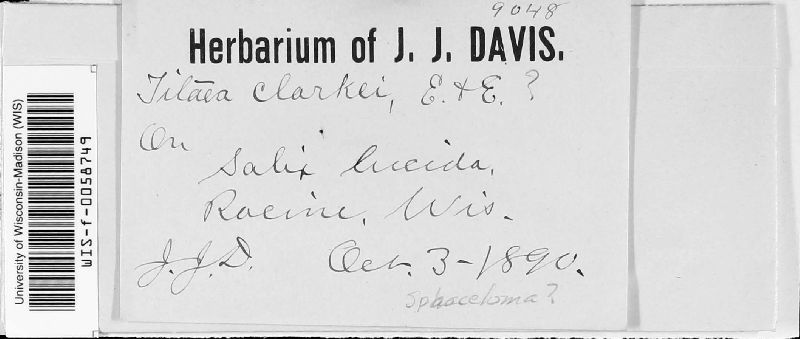 9048
Herbarium of J. J. DAVIS.
Titaea clarkei, E. & E. ?
On
Salix lucida,
Racine, Wis.
J.J.D. Oct. 3-1890.
sphaceloma?
University of Wisconsin-Madison (WIS)
WIS-f-0058749